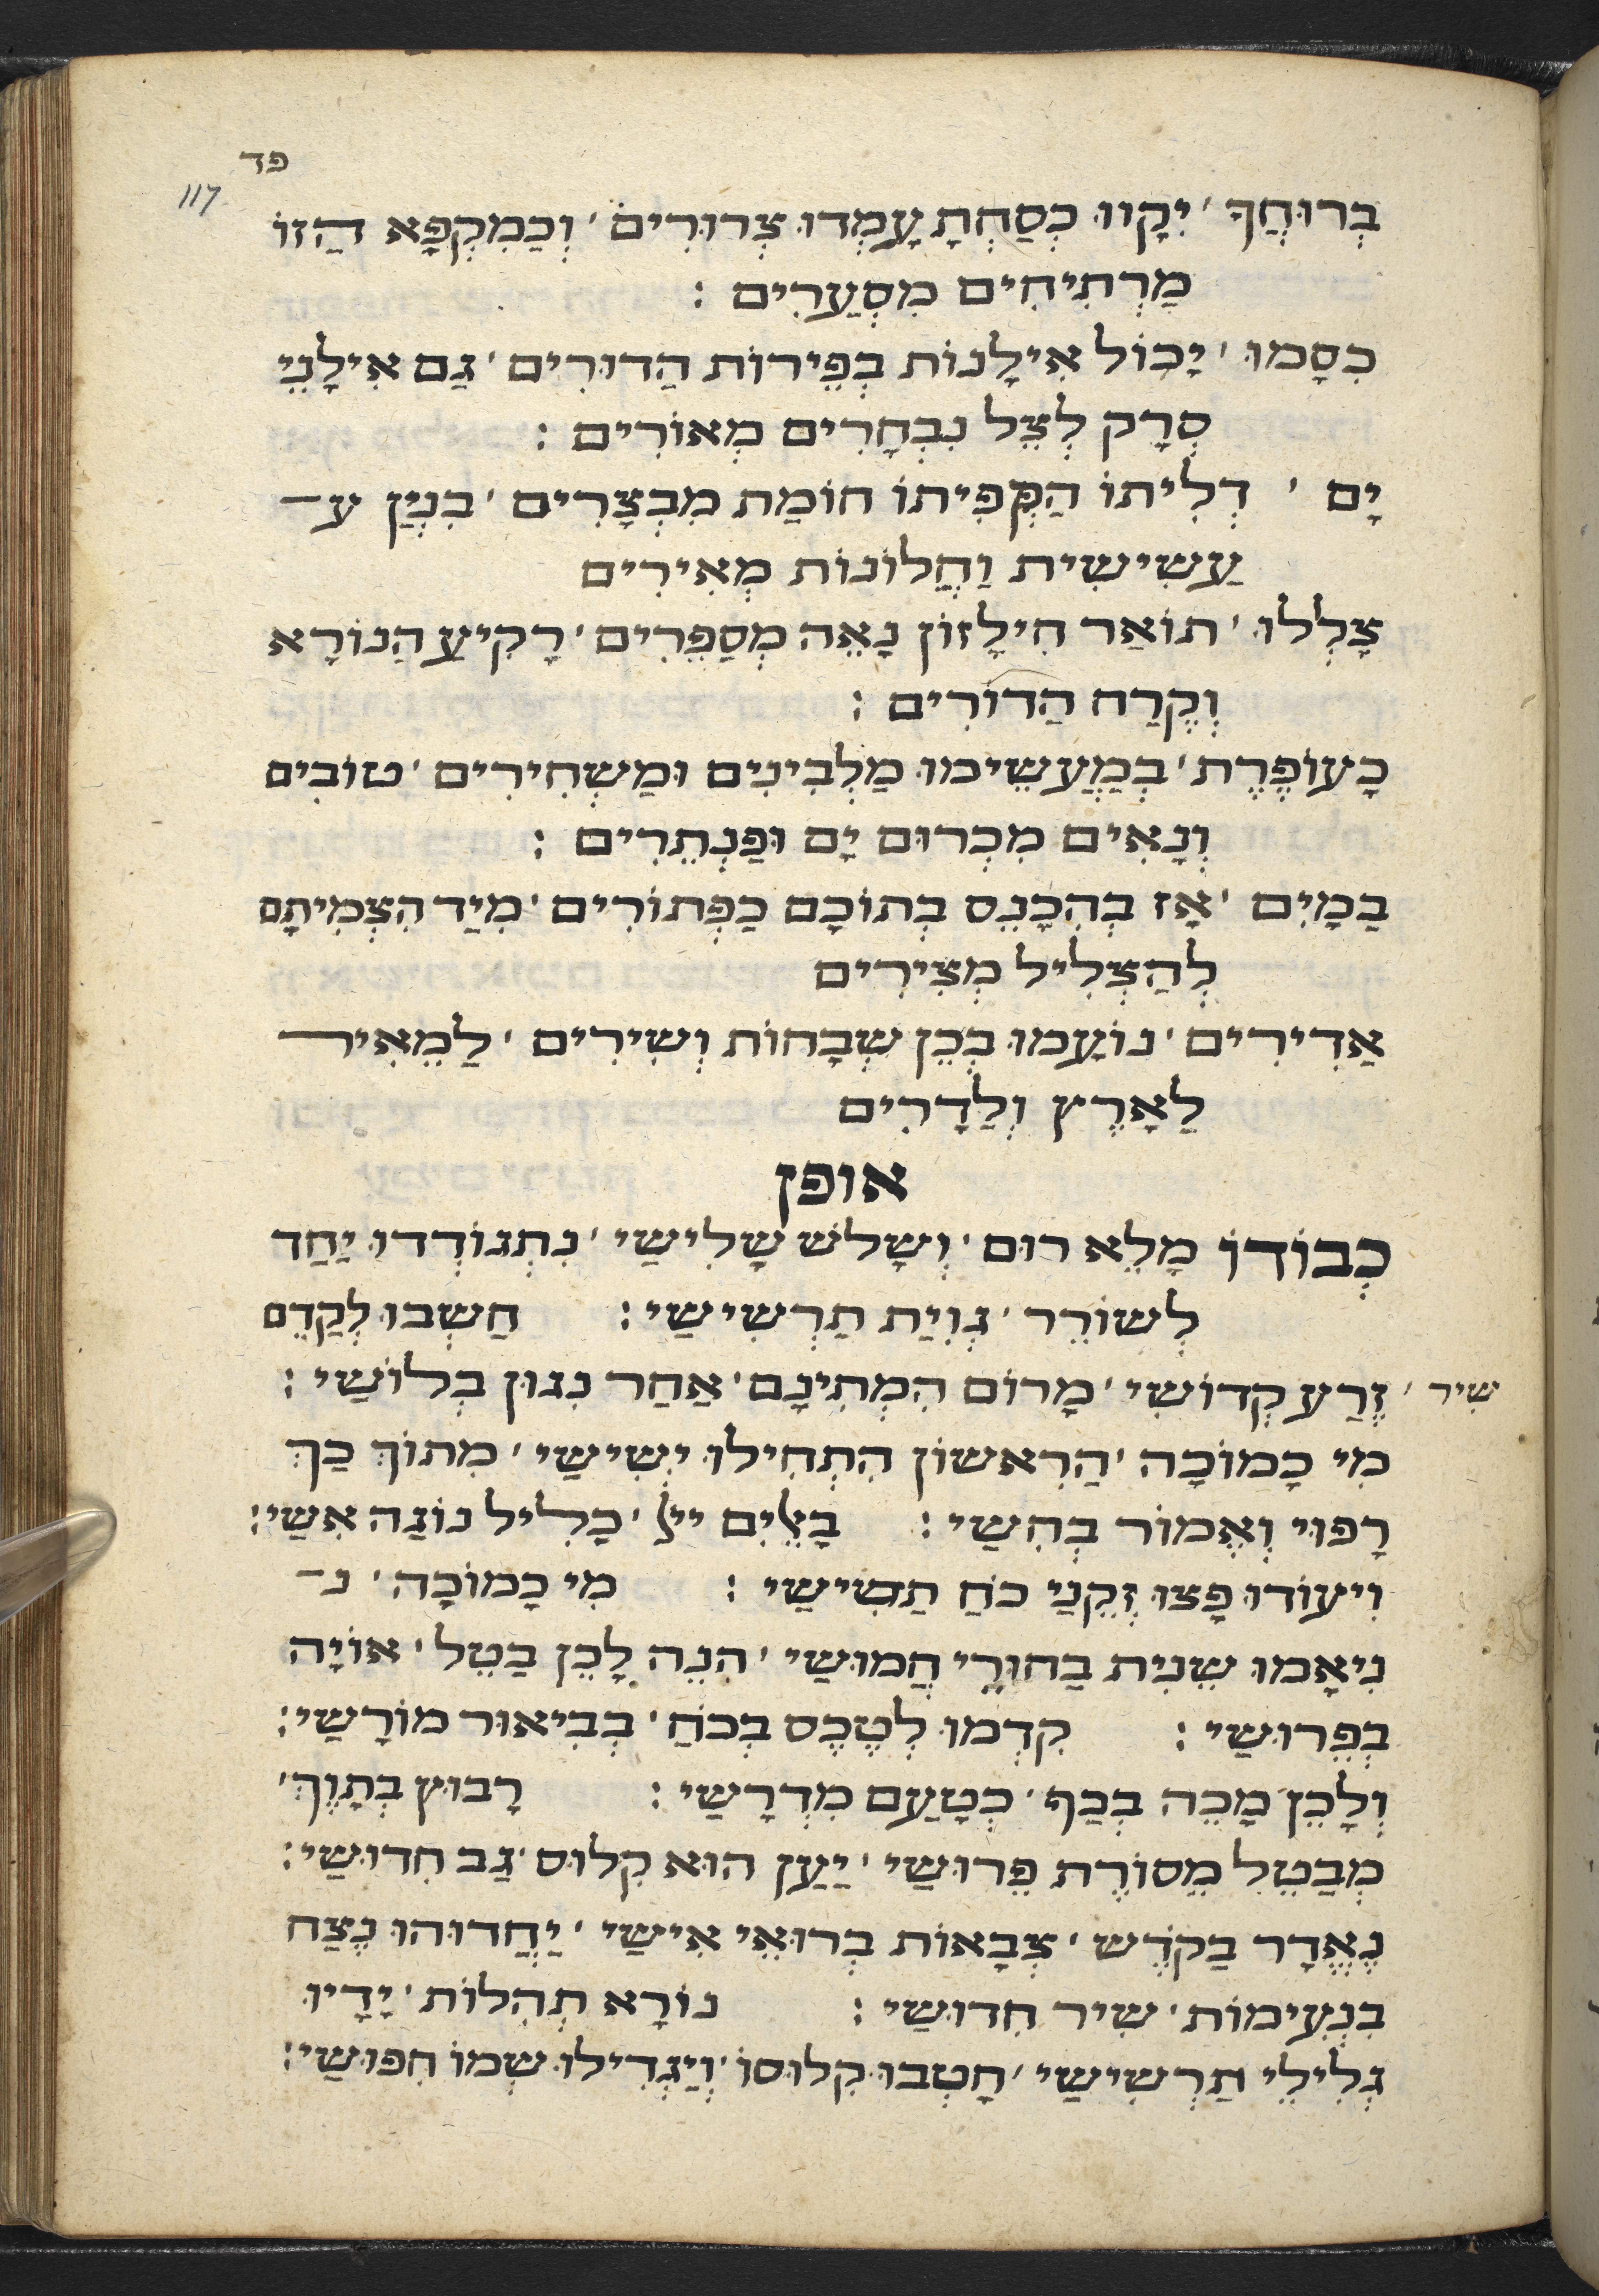 פד
117
בְרוּחֲךָ ׳ יִקָווּ כְסַחְתָ עָמְדוּ צְרוּרִים ׳ וְכַמִקְפָּא הַזוֹ
מַרְתִיחִים מִסְעַרִים :
כִסָמוּ ׳ יָכוֹל אִילָנוֹת בְפֵירוֹת הַדוּרִים ׳ גַם אִילָנֵי
סְרָק לְצֵל נִבְחָרִים מְאוֹרִים :
יָם ׳ דְלִיתוֹ הִקְפִיתוֹ חוֹמַת מִבְצָרִים ׳ בִנְיַן ע־
עַשִישִית וַחֲלוֹנוֹת מְאִירִים
צָלְלוּ ׳ תוֹאַר חִילָזוֹן נָאֶה מְסַפְּרִים ׳ רָקִיעַ הַנוֹרָא
וְקֶרַח הַדוֹרִים :
כָעוֹפֶרֶת ׳ בְמַעֲשֵימוּ מַלְבִינִים וּמַשְחִירִים ׳ טוֹבִים
וְנָאִים מִכְרוּם יָם וּפַנְתֵרִים :
בַמָיִם ׳ אָז בְהִכָנֵס בְתוֹכָם כַפְתוֹרִים ׳ מִיַד הִצְמִיתָם
לְהַצְלִיל מְצִירִים
אַדִירִים ׳ נוֹעַמוּ בְכֵן שְבָחוֹת וְשִירִים ׳ לַמֵאִיר
לַאָרֶץ וְלַדָרִים
אופן
כְבוֹדוֹ מָלֵא רוּם ׳ וְשָלֹש שָלִישַי ׳ נִתְגוֹדְדוּ יַחַד
לְשוֹרֵר ׳ גְוִיַת תַרְשִישַי : חַשְבוּ לְקַדֵם
שיר ׳ זֶרַע קְדוֹשִי ׳ מָרוֹם הִמְתִינָם ׳ אַחַר נִגוּן בְלוֹשַי :
מִי כָמוֹכָה ׳ הָרִאשוֹן הִתְחִילוּ יְשִישַי ׳ מִתוֹךְ כַךְ
רָפוּי וְאָמוֹר בְחִשַי : בָאֵלִים ייי ׳ כָלִיל נוֹגַה אִשַי :
וִיעוֹדוּ פָצוּ זְקֵנַי כֹחַ תַשִישַי : מִי כָמוֹכָה ׳ נ־
נִיאָמוּ שֵנִית בַחוּרֵי חֲמוּשַי ׳ הִנֵה לָכֵן בַטֵל ׳ אוֹיָה
בְפֵרוּשַי : קִדְמוּ לְטַכֵס בְכֹחַ ׳ בְבִיאוּר מוֹרָשַי :
וְלָכֵן מַכֵה בְכַף ׳ כְטַעַם מִדְרָשַי : רָבוּץ בְתָוֶךְ ׳
מְבַטֵל מָסוֹרֶת פֵרוּשַי ׳ יַעַן הוּא קִלוּס ׳ גַב חִדוּשַי :
נֶאֱדָר בַקֹדֶש ׳ צְבָאוֹת בְרוּאֵי אִישַי ׳ יַחֲדוּהוּ נֶצַח
בִנְעִימוֹת ׳ שִיר חִדוּשַי : נוֹרָא תְהִלוֹת ׳ יָדָיו
גְלִילֵי תַרְשִישַי ׳ חָטְבוּ קִלוּסוֹ ׳ וְיַגְדִילוּ שְמוֹ חִפוּשַי :